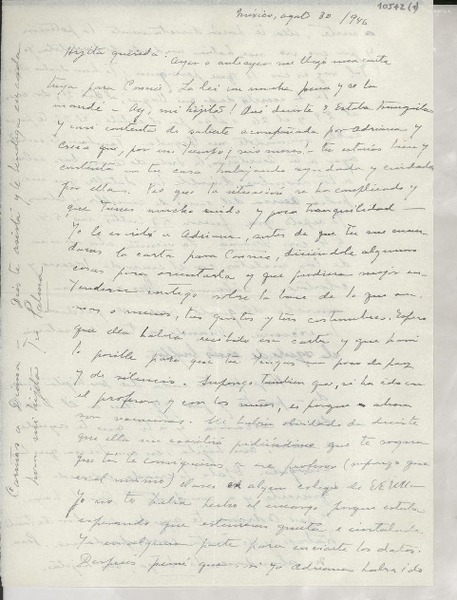 10542 (1)
México, agosto 30 / 1946
Hijita querida: Ayer o antier me llegó una carta
tuya para Connie. La leí con mucha pena y se la
mandé. Ay, mi hijita! Qué decirte? Estaba tranquila
y casi contenta de saberte acompañada por Adriana y
creía que, por un tiempo, seis meses! tú estarías bien y
contenta en tu casa trabajando ayudada y cuidada
por ella. Veo que tu situación se ha complicado y
que tienes mucho ruido y poca tranquilidad
Yo le escribí a Adriana, antes de que tú me man-
daras la carta para Connie, diciéndole algunas
cosas para orientarla y que pudiera mejor en-
tenderse contigo sobre la base de lo que
más o menos, tus gustos y tus costumbres. Espero
que ella habrá recibido esa carta y que hará
lo posible para que tú tengas un poco de paz
y de silencio. Supongo también que, si ha ido con
el profesor y con los niños, es porque ahora
son vacaciones. Me había olvidado de decirte
que ella me escribió pidiéndome que te rogara
que tú le consiguieras a un profesor (supongo que
es el mismo) clases en algún colegio de EEUU
yo no te había hecho el encargo porque estaba
esperando que estuvieras quieta e instalada
en cualquier parte para enviarte los datos.
Después pensé que si ya Adriana había ido
Cariños a Doris. Dios te asista y te bendiga en cada
hora mi hijita Tu Palma